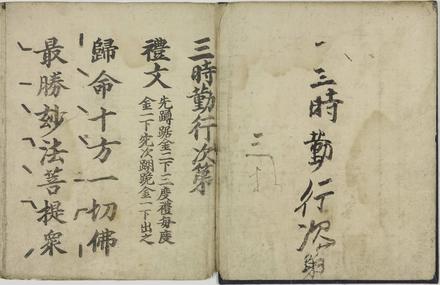 三時勤行次第
三時勤行次第
禮文
先蹲踞金二下三度禮每度
金一下完次蹦跪金一下出之
歸命十方一切佛
最勝妙法菩提衆